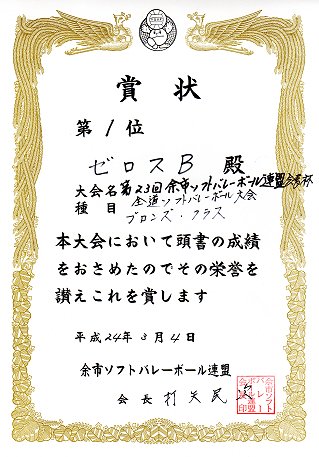 賞状
第1位
ゼロスB 殿
大会名 第23回余市ソフトバレーボール連盟会長杯
種目 全道ソフトバレーボール大会
ブロンズ・クラス
本大会において頭書の成績
をおさめたのでその栄誉を
讃えこれを賞します
平成24年3月4日
余市ソフトバレーボール連盟
会長 打矢民